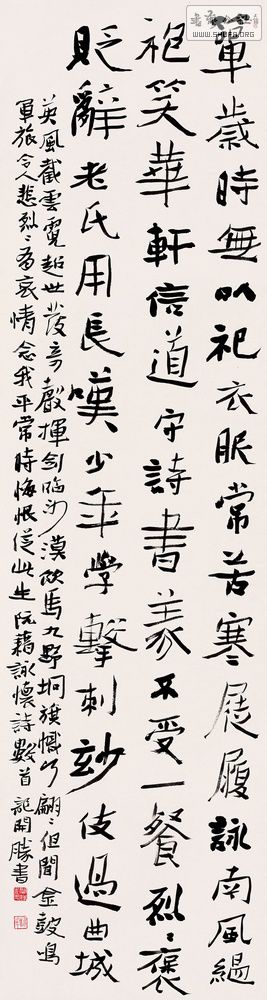 簞歲時無以祀衣服常苦寒屣履詠南風縕
袍笑華軒信道守詩書義不受一餐烈々褒
貶辭老氏用長嘆少年學擊刺妙伎過曲城
英風截雲霓超世發奇聲揮劍臨沙漠飲馬九野坰旗幟何翩々但聞金鼓鳴
軍旅令人悲烈々有哀情念我平常時悔恨從此生阮籍詠懷詩數首龍開勝書